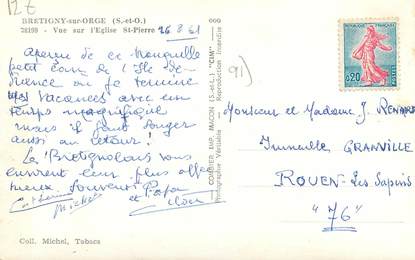 12 Z
BRETIGNY-sur-ORGE (S.-et-O.)
78198 - Vue sur l'Eglise St-Pierre
26.8.61
Aperçu de ce tranquille
petit coin de l'Ile de
france où je termine
mes vacances avec un
temps magnifique
mais il faut songer
aussi au retour !
La Bretignolais vous
envoient leur plus affec
tueux souvenirs Papa
Catherine
Michel
et
Coll. Michel, Tabacs
COMBIER IMP. MACON (S.-et-L.) "CIM"
Photographie Véritable - Reproduction Interdite
91)
0,20
Monsieur et Madame J. RENARD
Immeuble GRANVILLE
ROUEN - Les Sapins
"76"